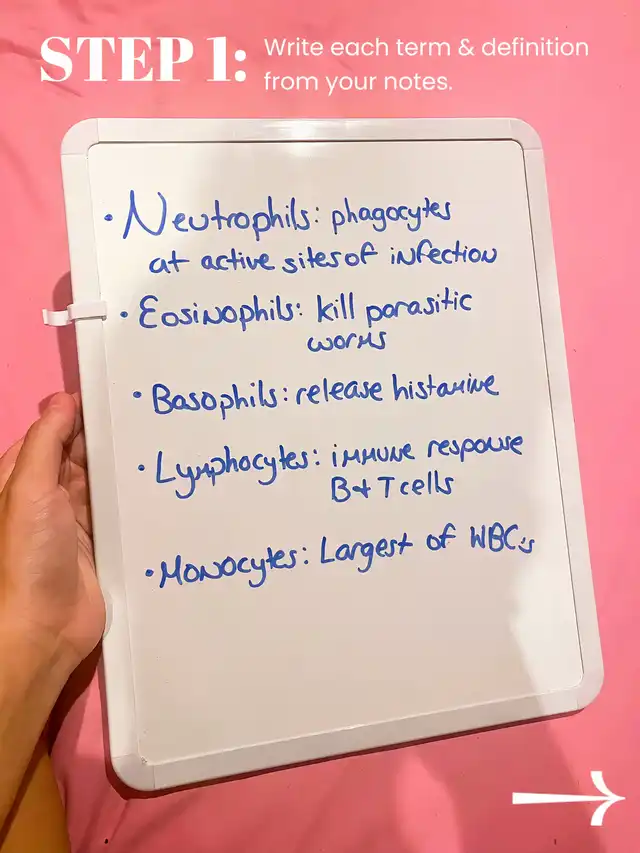 STEP 1:
Write each term & definition
from your notes.
• Neutrophils: phagocytes
at active sites of infection
• Eosinophils: kill parasitic
worms
• Basophils: release histamine
• Lymphocytes: immune response
B+ T cells
• Monocytes: Largest of WBC's